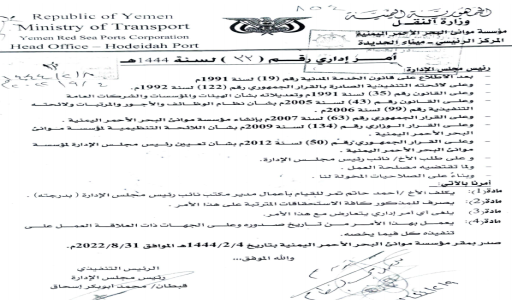 الجمهورية اليمنية
وزارة النقل
مؤسسة موانئ البحر الأحمر اليمنية
المركز الرئيسي - ميناء الحديدة
Republic of Yemen
Ministry of Transport
Yemen Red Sea Ports Corporation
Head Office – Hodeidah Port
أمر إداري رقم (٢٢) لسنة 1444هـ
رئيس مجلس الإدارة:
– بعد الاطلاع على قانون الخدمة المدنية رقم (19) لسنة 1991م.
– وعلى لائحته التنفيذية الصادرة بالقرار الجمهوري رقم (122) لسنة 1992م.
– وعلى القانون رقم (35) لسنة 1991م وتعديلاته بشأن الهيئات والمؤسسات والشركات العامة
– وعلى القانون رقم (43) لسنة 2005م بشأن نظام الوظائف والأجور والمرتبات ولائحته
التنفيذية رقم (99) لسنة 2006م.
– وعلى القرار الجمهوري رقم (63) لسنة 2007م بإنشاء مؤسسة موانئ البحر الأحمر اليمنية.
– وعلى القرار الوزاري رقم (134) لسنة 2009م بشأن اللائحة التنظيمية لمؤسسة موانئ
البحر الأحمر اليمنية.
– وعلى القرار الجمهوري رقم (50) لسنة 2012م بشأن تعيين رئيس مجلس الإدارة لمؤسسة
موانئ البحر الأحمر اليمنية.
– و على طلب الأخ/ نائب رئيس مجلس الإدارة.
– ولما تقتضيه مصلحة العمل.
– وبناءً على الصلاحيات المخولة لنا.
أمرنا بالآتي:
مادة(1): يكلف الأخ/ احمد حاتم نمر للقيام بأعمال مدير مكتب نائب رئيس مجلس الإدارة (بدرجته).
مادة(2): يصرف للمذكور كافة الاستحقاقات المترتبة على هذا الأمر.
مادة(3): يلغى أي أمر إداري يتعارض مع هذا الأمر.
مادة(4): يعمل بهذا الأمر من تاريخ صدوره وعلى الجهات ذات العلاقة العمل على
تنفيذه كل فيما يخصه.
صدر بمقر مؤسسة موانئ البحر الأحمر اليمنية بتاريخ 1444/2/4هـ الموافق 2022/8/31م.
والله الموفق...
الرئيس التنفيذي
رئيس مجلس الإدارة
قبطان/ محمد أبوبكر إسحاق